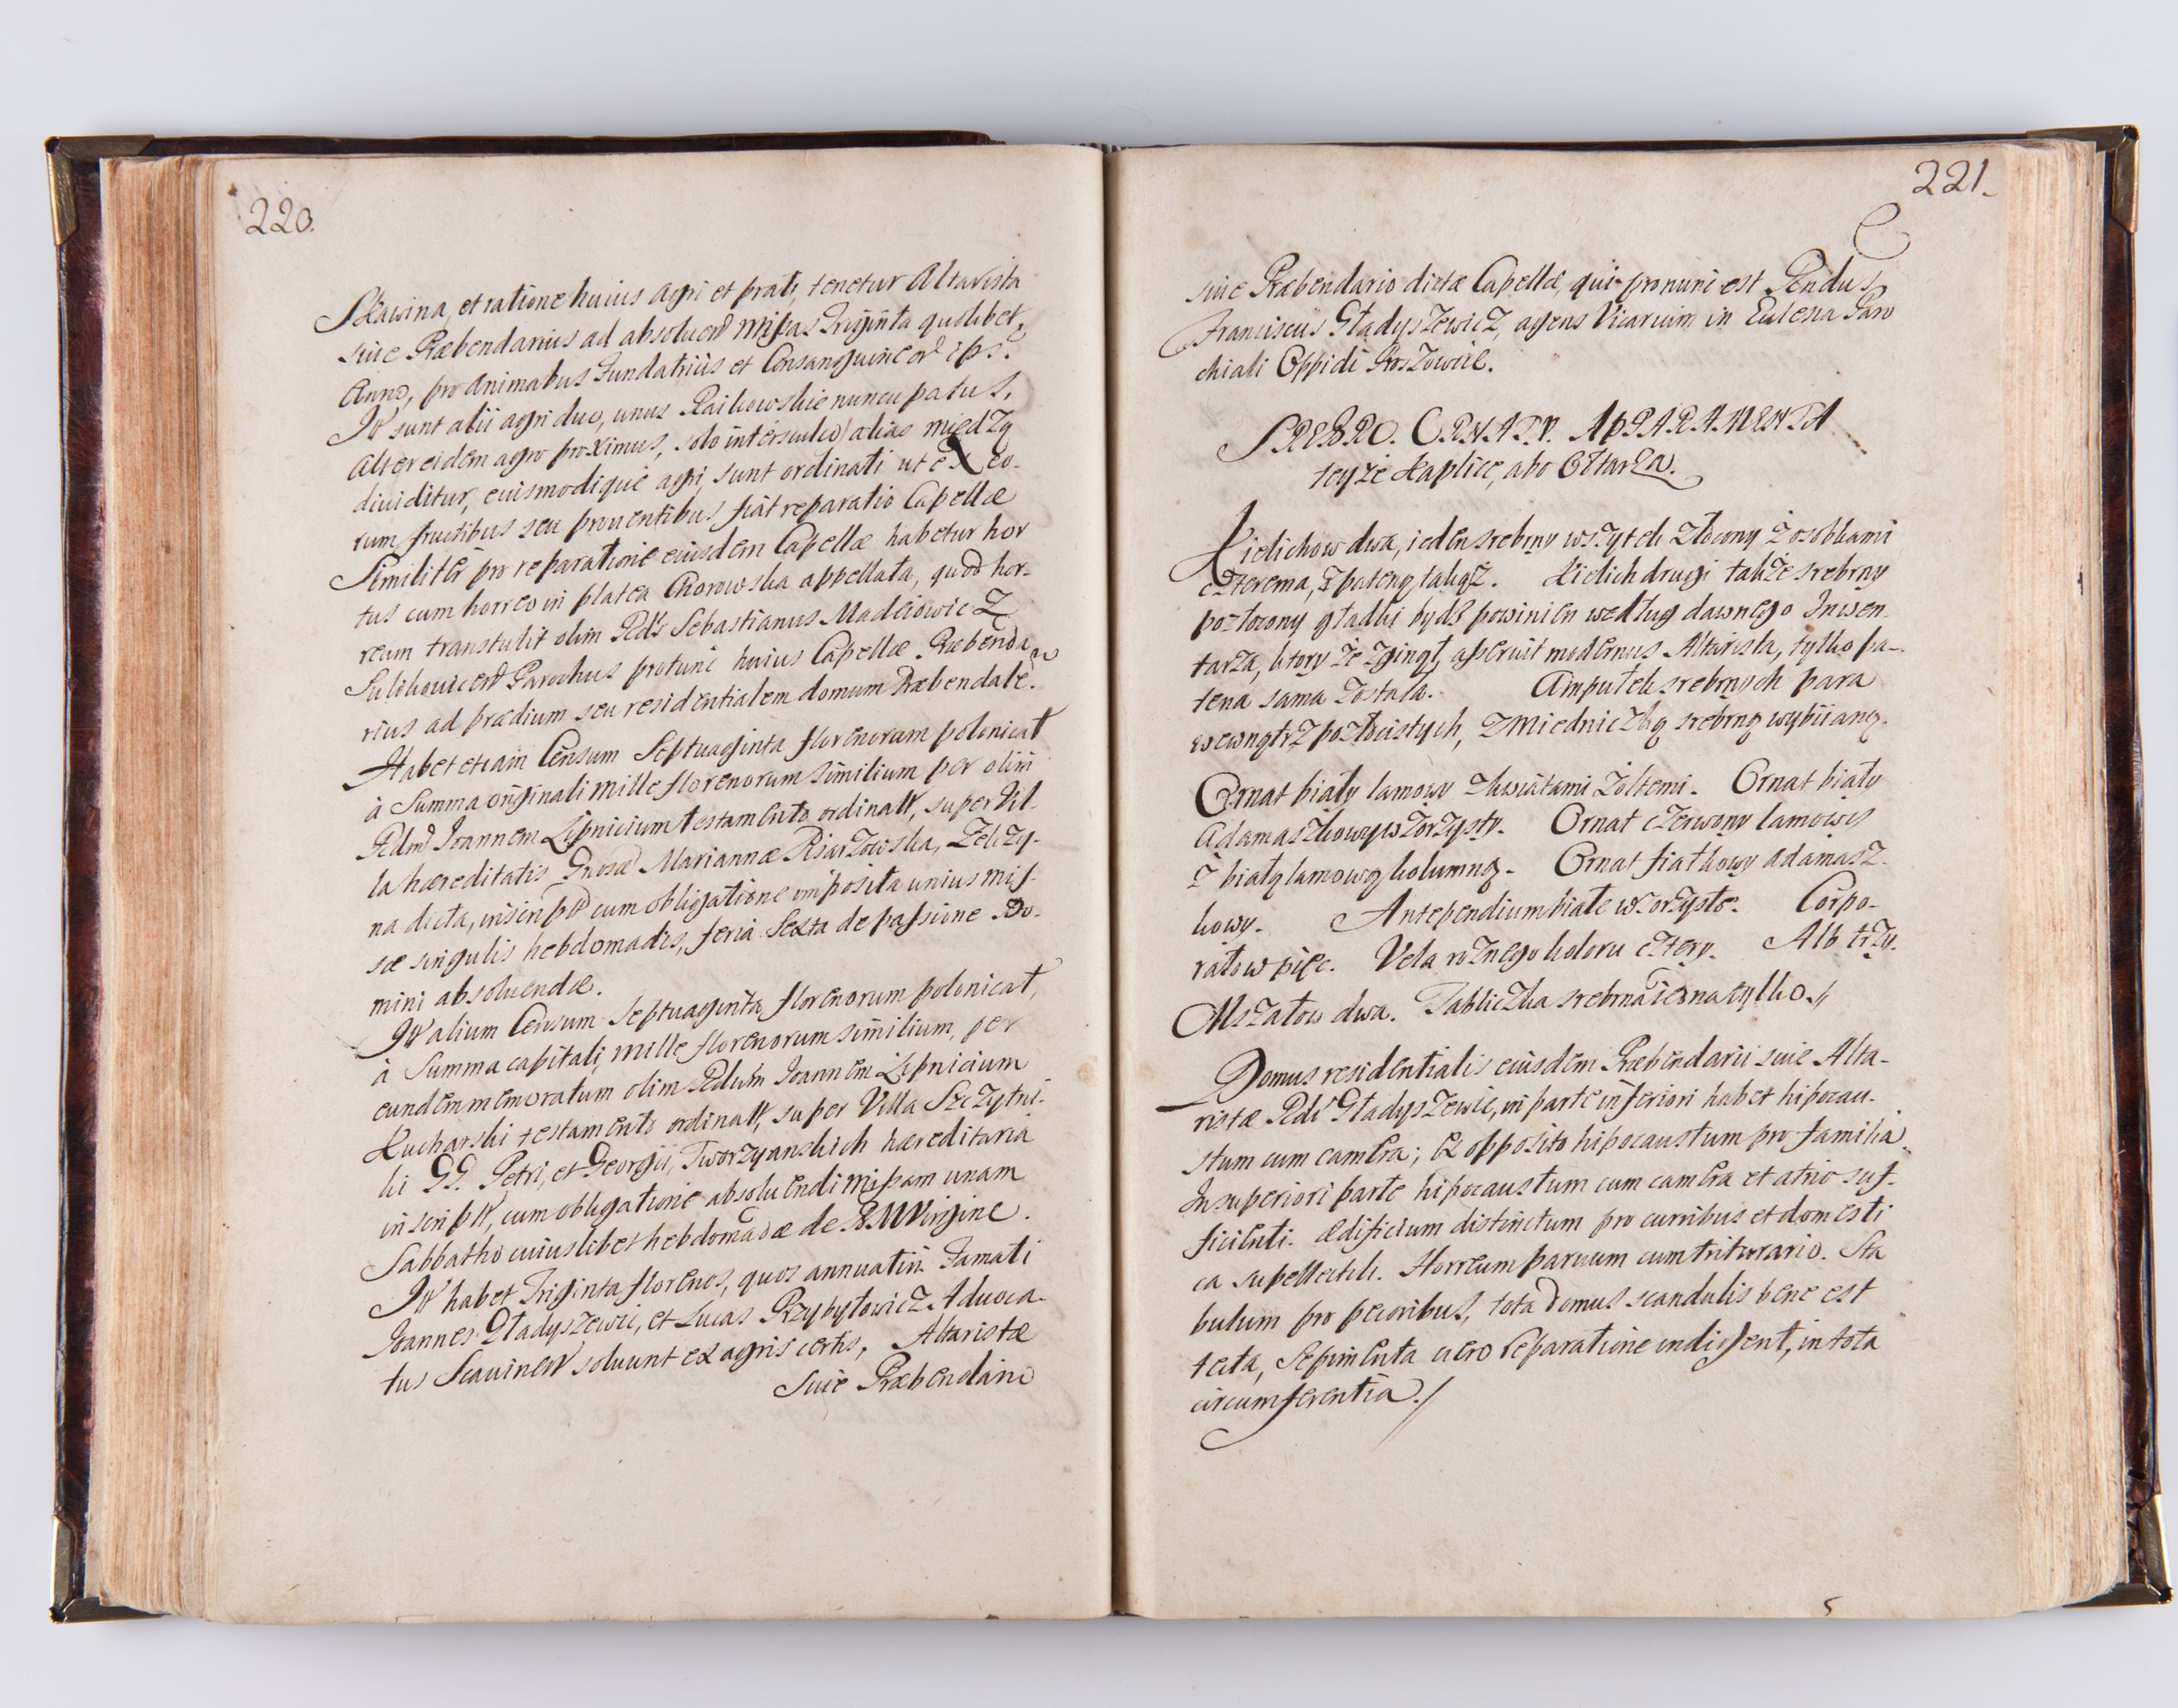 220.
Skawina, et ratione huius agri et prati, tenetur Altarista
siue Præbendarius ad absoluen missas Triginta quolibet
Anno, pro animabus Fundatricis et Consanguineor
It sunt alii agri duo, unus Raikowskie nuncupatus,
Alter eidem agro proximus, solo interscalio alias miedzą
diuiditur, euismodique agri, sunt ordinati ut ex eo-
rum fructibus seu prouentibus fiat reparatio Capellæ
Similiter pro reparatione eiusdem Capellæ habetur hor
tus cum horreo in platea Chorowska appellata, quod hor-
reum transtulit olim Rds Sebastianus Madeiowicz
Sulikouicen Parochus protunc huius Capellæ Præbenda
rius ad prædium seu residentialem domum Præbendale.
Habet etiam Censum Septuaginta florenorum polonicat
à Summa originali mille florenorum similium per olim
Rdm Joannem Lipnicium testamento ordinatt, super Vil
la hæreditatis Gnosæ Mariannæ Pisarzowska, Zelizy-
na dicta, inscript cum obligatione imposita unius mis-
sæ singulis hebdomadis, feria Sexta de passione Do-
mini absoluendæ.
It alium Censum Septuaginta florenorum polonicat,
à Summa capitali, mille florenorum similium, per
eundem memoratum olim Rdum Joannem Lipnicium
Kucharski testamento ordinatt, super Villa Szczytni-
ki GG. Petri, et Georgii, Tworzyanskich hæreditaria
inscriptt, cum obligatione absoluendi missam unam
Sabbatho cuiuslibet hebdomadæ de B. M Virgine.
It habet Triginta florenos, quos annuatim Famati
Joannes Gładyszewic, et Lucas Przybyłowicz Aduoca-
tus Scauinen soluunt ex agris certis, Altaristæ
Siue Præbendario
221.
siue Præbendario dictæ Capellæ, qui pronunc est Rendus
Franciscus Gładyszewicz, agens Vicarium in Eccleśia Paro
chiali Oppidi Proszowice.
SREBRO. ORNATY. APPARAMENTA
teyże Kaplice, abo Ołtarza.
Kielichow dwa, ieden srebrny wszytek złocony z osobkami
czterema, z pateną takąż. Kielich drugi także srebrny
pozłocony gładki bydź powinien według dawnego Inwen-
tarza, ktory że zginął, asseruit modernus Altarista, tylko pa-
tena sama została. Ampułek srebrnych para
wewnątrz pozłocistych, z miedniczką srebrną wybiianą.
Ornat biały lamowy z kwiatami żołtemi. Ornat biały
Adamaszkowy wzorzysty. Ornat czerwony lamowy
z białą lamową kolumną. Ornat fiałkowy Adamasz-
kowy. Antependium białe wzorzyste. Corpo-
rałow pięc. Vela rożnego koloru cztery. Alb trzy.
Mszałow dwa. Tabliczka srebrna iedna tylko.//
Domus residentialis eiusdem Præbendarii siue Alta-
ristæ Rdi Gładyszewic, in parte inferiori habet hipocau-
stum cum camera; Ex opposito hipocaustum pro familia.
In superiori parte hipocaustum cum camera et atrio suf-
ficienti. Ædificium distinctum pro curribus et domesti
ca supellectili. Horreum paruum cum triturario. Sta
bulum pro pecoribus, tota Domus scandulis bene est
tecta, Sepimenta uero reparatione indigent, in tota
circumferentia./